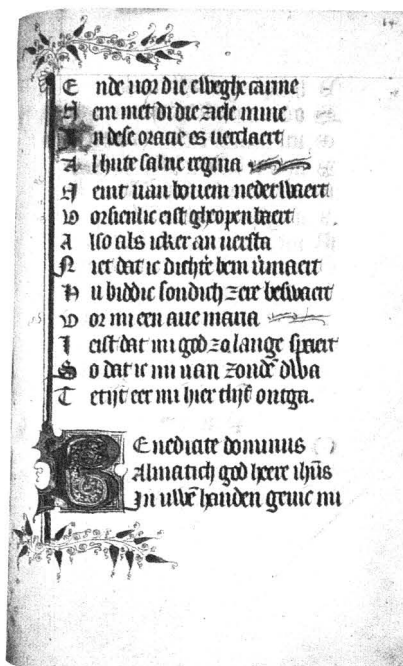 14
E nde uor die eweghe carine
N em met di die ziele mine
I n dese oracie es verclaert
A l hute salue regina
N eint uan bouem nederwaert
V orsienlic eist gheopenbaert
A lso als icker an versta
N iet dat ic dichte bem vmaert
N u biddic sondich zere beswaert
V or mi een aue maria
I eist dat mi god zo lange spaert
S o dat ic mi uan zondē dwa
T etijt eer mi hier tlijf ontga.
B Enedicite dominus
Almatich god heere ihūs
In uwē handen gheuic mi